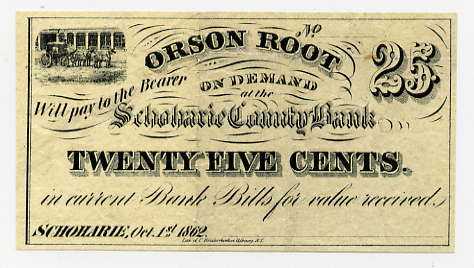 No
ORSON ROOT
25
Will pay to the Bearer
ON DEMAND
at the
Schoharie County Bank
TWENTY FIVE CENTS.
in current Bank Bills for value received.
SCHOHARIE, Oct. 1st 1862.
Albany, N.Y.